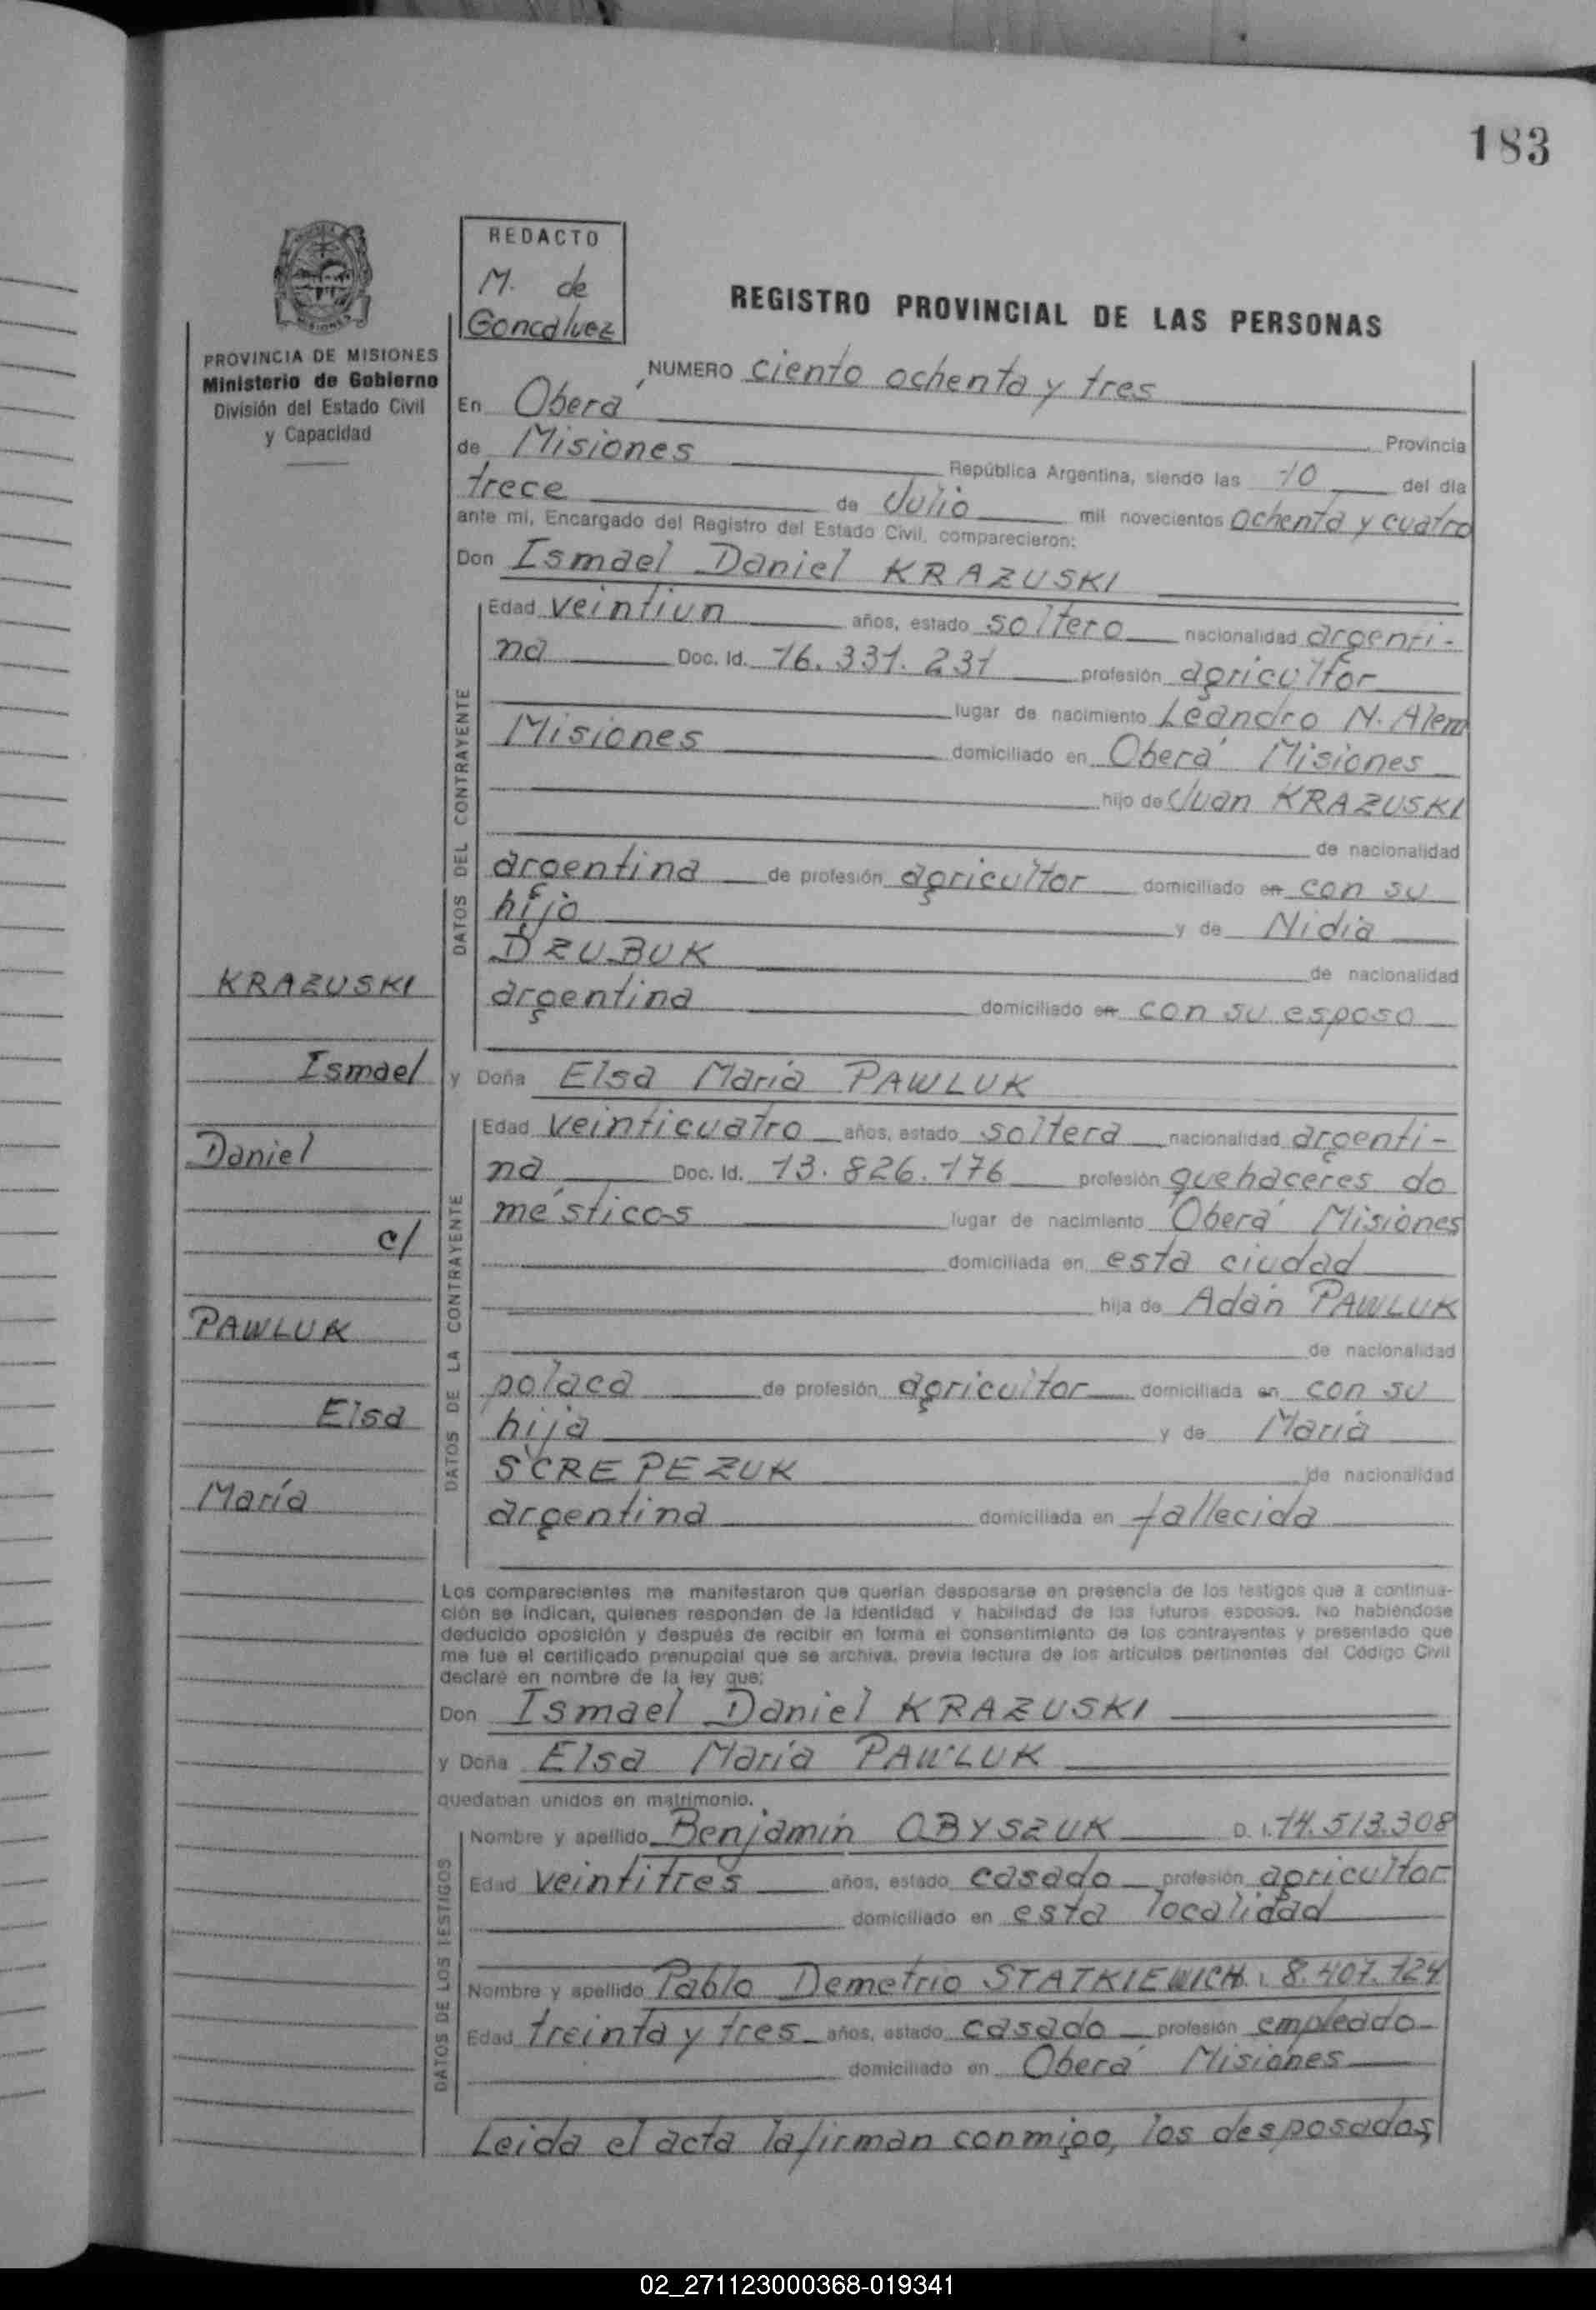 183
REDACTO
M. de
Goncalvez
REGISTRO PROVINCIAL DE LAS PERSONAS
PROVINCIA DE MISIONES
Ministerio de Gobierno
División del Estado Civil
y Capacidad
NUMERO ciento ochenta y tres
En Oberá
Provincia
de Misiones República Argentina, siendo las 10 del día
trece de Julio mil novecientos ochenta y cuatro
ante mi, Encargado del Registro del Estado Civil, comparecieron:
Don Ismael Daniel KRAZUSKI
DATOS DEL CONTRAYENTE
Edad veintiun años, estado soltero nacionalidad argenti-
na Doc. Id. 16.331.231 profesión agricultor
lugar de nacimiento Leandro N. Alem
Misiones domiciliado en Oberá Misiones
hijo de Juan KRAZUSKI
de nacionalidad
argentina de profesión agricultor domiciliado en con su
hijo y de Nidia
DZUBUK de nacionalidad
argentina domiciliado en con su esposo
y Doña Elsa María PAWLUK
DATOS DE LA CONTRAYENTE
Edad veinticuatro años, estado soltera nacionalidad argenti-
na Doc. Id. 13.826.176 profesión quehaceres do
mésticos lugar de nacimiento Oberá Misiones
domiciliada en esta ciudad
hija de Adán PAWLUK
de nacionalidad
polaca de profesión agricultor domiciliada en con su
hija y de María
SCREPEZUK de nacionalidad
argentina domiciliada en fallecida
KRAZUSKI
Ismael
Daniel
c/
PAWLUK
Elsa
María
Los comparecientes me manifestaron que querían desposarse en presencia de los testigos que a continua-
ción se indican, quienes responden de la identidad y habilidad de los futuros esposos. No habiéndose
deducido oposición y después de recibir en forma el consentimiento de los contrayentes y presentado que
me fue el certificado prenupcial que se archiva, previa lectura de los artículos pertinentes del Código Civil
declaré en nombre de la ley que:
Don Ismael Daniel KRAZUSKI
y Doña Elsa María PAWLUK
quedaban unidos en matrimonio.
DATOS DE LOS TESTIGOS
Nombre y apellido Benjamín OBYSZUK D. I. 14.513.308
Edad veintitres años, estado casado profesión agricultor
domiciliado en esta localidad
Nombre y apellido Pablo Demetrio STATKIEWICH. I. 8.407.124
Edad treinta y tres años, estado casado profesión empleado
domiciliado en Oberá Misiones
Leida el acta la firman conmigo, los desposados,
02_271123000368-019341